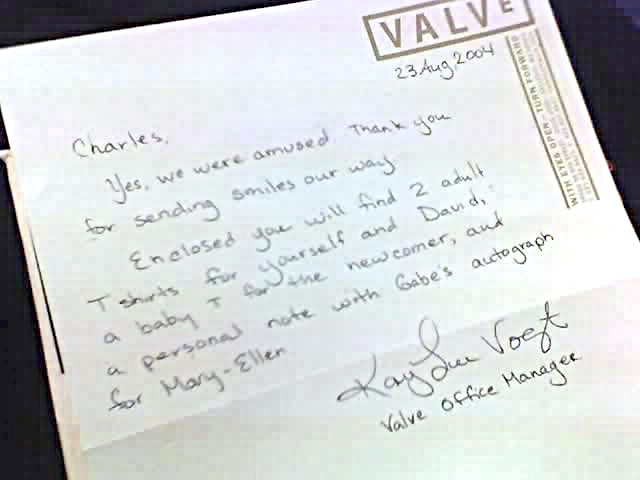 VALVE
23 Aug, 2004
WITH EYES OPEN - TURN FORWARD
Charles,
Yes, we were amused. Thank you
for sending smiles our way
Enclosed you will find 2 adult
T shirts for yourself and David,
a baby T for the newcomer, and
a personal note with Gabe's autograph
for Mary-Ellen
Kay Sue Voegt
Valve Office Manager